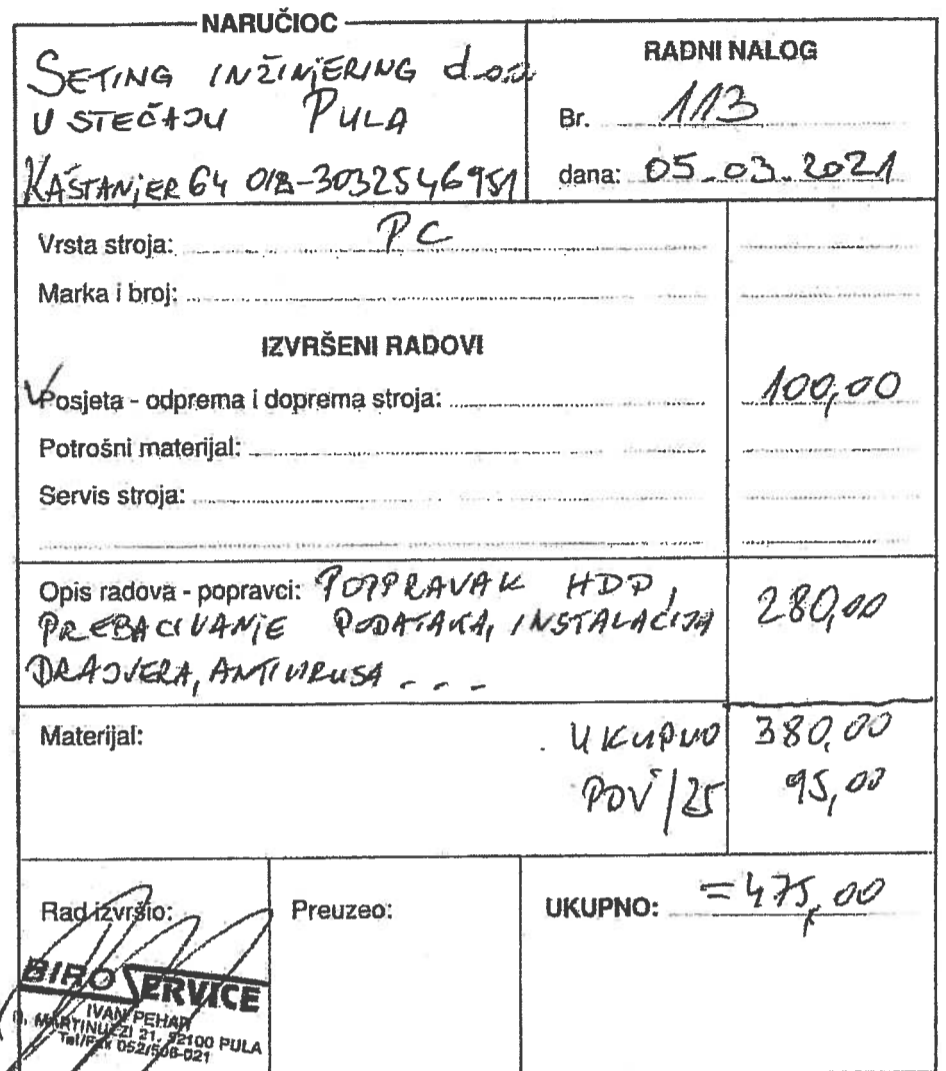 NARUČIOC
SETING INŽINJERING d.o.o.
U STEČAJU PULA
KAŠTANJER 64 OIB-3032546951
RADNI NALOG
Br. 113
dana: 05.03.2021
Vrsta stroja: PC
Marka i broj:
IZVRŠENI RADOVI
Posjeta - odprema i doprema stroja: 100,00
Potrošni materijal:
Servis stroja:
Opis radova - popravci: POPPRAVAK HDD, 280,00
PREBACIVANJE PODATAKA, INSTALACIJA
DRAJVERA, ANTIVIRUSA - - -
Materijal: UKUPNO 380,00
PDV/25 95,00
Rad izvršio:
Preuzeo:
UKUPNO: =475,00
BIRO SERVICE
IVAN PEHAR
MARTINUZZI 21, 52100 PULA
Tel/Fax 052/506-021